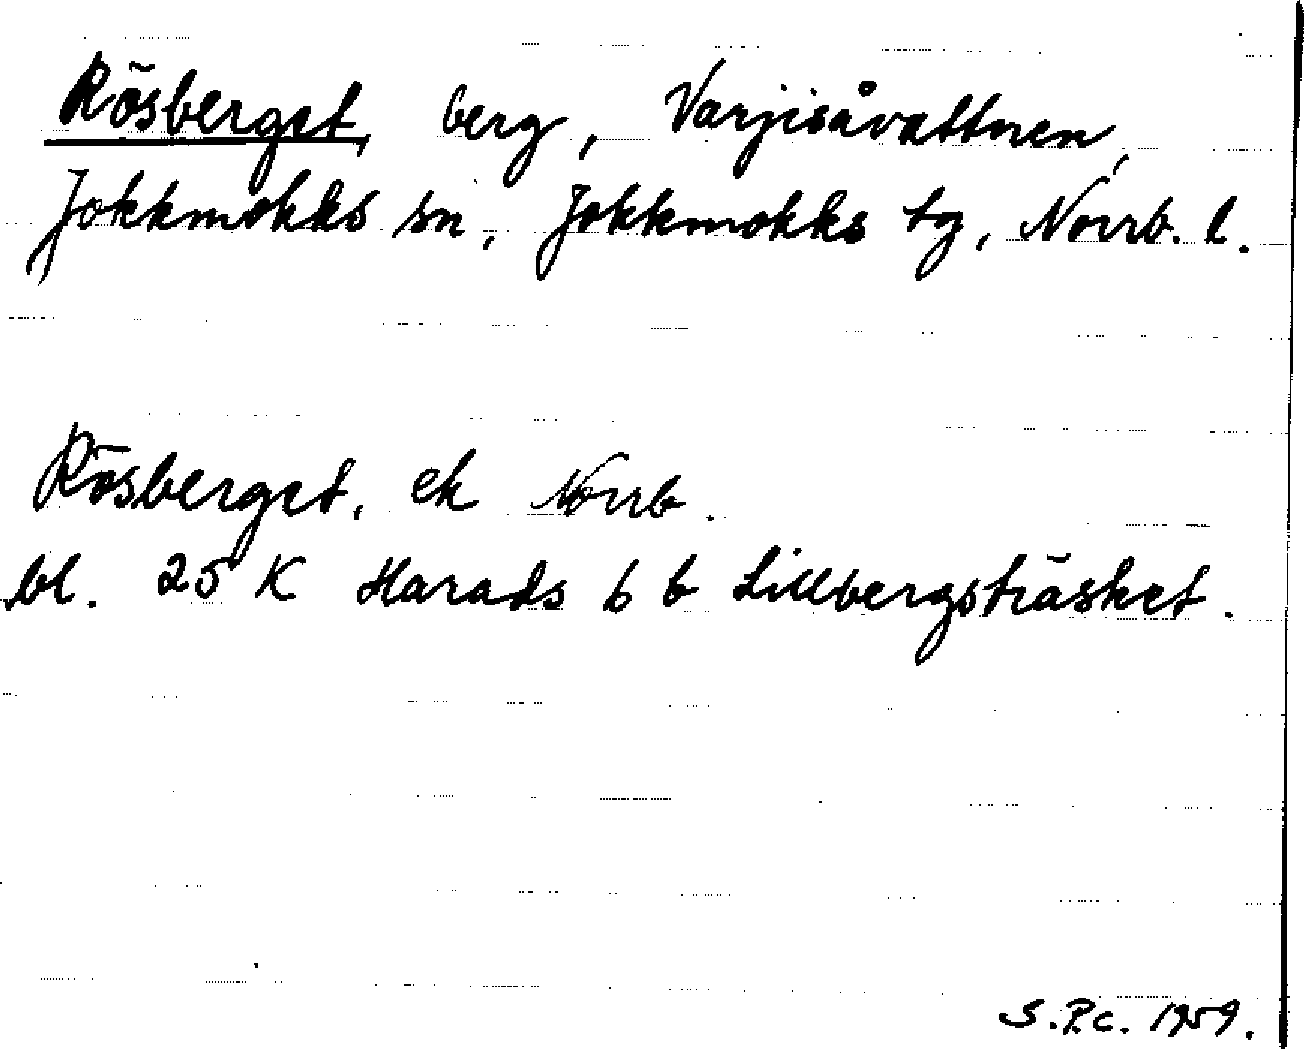 Rösberget, berg, Varjisåvattnen,
Jokkmokks sn, Jokkmokks tg, Norrb. l.
Rösberget, ek Norrb.
bl. 25 K Harads 6 b Lillbergsträsket.
S.P.C. 1959.